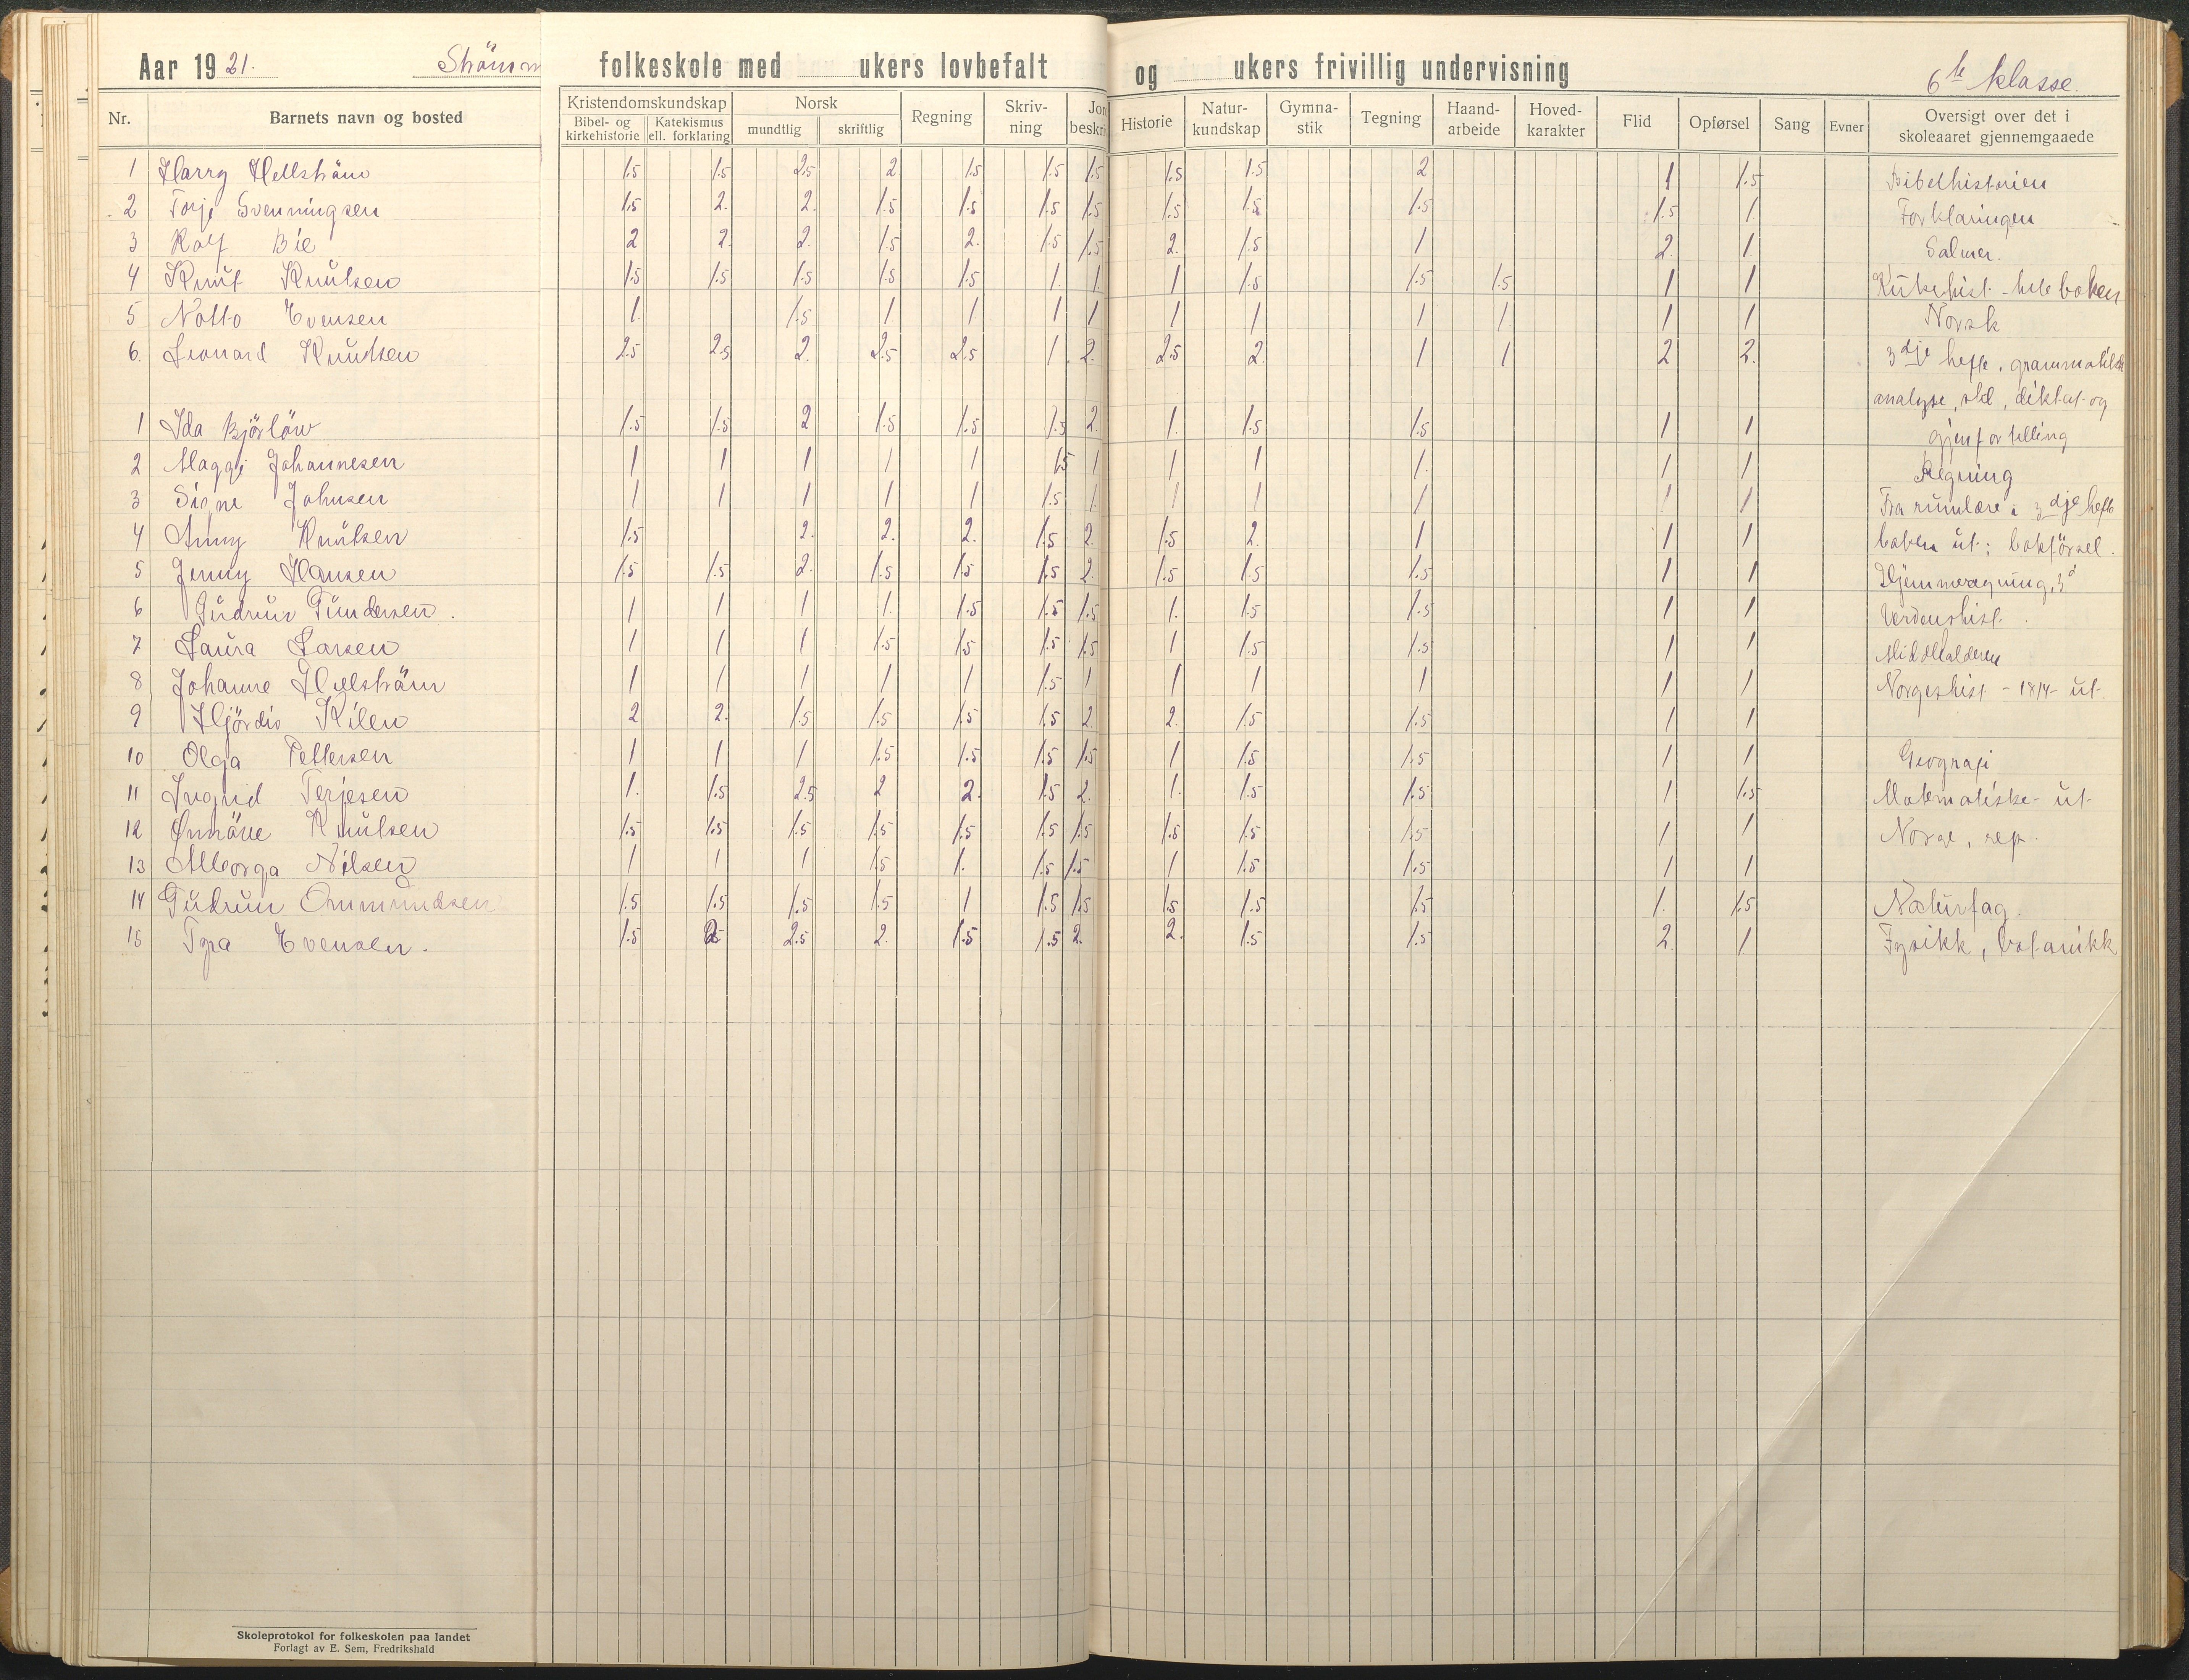 Aar 1921. Strömm folkeskole med ukers lovbefalt og ukers frivillig undervisning 6te klasse.
Nr. Barnets navn og bosted Kristendomskundskap Bibel- og kirkehistorie Katekismus ell. forklaring Norsk mundtlig skriftlig Regning Skriv-ning Jor beskri Historie Natur-kundskap Gymna-stik Tegning Haand-arbeide Hoved-karakter Flid Opførsel Sang Evner Oversigt over det i skoleaaret gjennemgaaede
1 Harry Hellström 1.5 1.5 2.5 2 1.5 1.5 1.5 1.5 1.5 2 1 1.5 Bibelhistorien
2 Torje Svenningsen 1.5 2. 2. 1.5 1.5 1.5 1.5 1.5 1.5 1.5 1.5 1 Forklaringen
3 Rolf Bie 2 2. 2. 1.5 2. 1.5 1.5 2. 1.5 1 2. 1. Salmer.
4 Knut Knutsen 1.5 1.5 1.5 1.5 1.5 1. 1. 1 1.5 1.5 1.5 1 1 Kirkehist. - hele boken
5 Notto Evensen 1. 1.5 1. 1 1 1 1 1 1 1 1 1 Norsk
6. Leonard Knutsen 2.5 2.5 2. 2.5 2.5 1. 2. 2.5 2. 1 1 2 2. 3dje hefte, grammatikk
analyse, stil, diktat og
1 Ida Bjørløw 1.5 1.5 2 1.5 1.5 1.5 2. 1. 1.5 1.5 1 1 gjenfortelling
2 Maggi Johannesen 1 1 1 1 1 1.5 1 1 1 1. 1 1 Regning
3 Signe Johnsen 1 1 1 1 1 1.5 1. 1 1 1 1 1 Fra rumlære i 3dje hefte
4 Anny Knutsen 1.5 2. 2. 2. 1.5 2. 1.5 2. 1 1 1 boken ut; bokförsel.
5 Jenny Hansen 1.5 1.5 2. 1.5 1.5 1.5 2. 1.5 1.5 1.5 1 1 Hjemmeregning, 3d
6 Gudrun Gundersen. 1 1 1 1. 1.5 1.5 1.5 1. 1.5 1.5 1 1 Verdenshist.
7 Laura Larsen 1 1 1 1.5 1.5 1.5 1.5 1 1.5 1.5 1 1 Middelalderen
8 Johanne Hellström 1 1 1 1 1 1.5 1 1 1 1 1 1 Norgeshist. - 1814 - ut.
9 Hjördis Kilen 2 2. 1.5 1.5 1.5 1.5 2. 2. 1.5 1.5 1 1
10 Olga Pettersen 1 1 1 1.5 1.5 1.5 1.5 1 1.5 1.5 1 1 Geografi
11 Ingrid Terjesen 1. 1.5 2.5 2 2. 1.5 2. 1. 1.5 1.5 1 1.5 Matematiske - ut.
12 Knutsen 1.5 1.5 1.5 1.5 1.5 1.5 1.5 1.5 1.5 1.5 1 1 Norge, rep.
13 Alborga Nilsen 1 1 1 1.5 1. 1.5 1.5 1 1.5 1.5 1 1
14 Gudrun Ommundsen 1.5 1.5 1.5 1.5 1 1.5 1.5 1.5 1.5 1.5 1. 1.5 Naturfag.
15 Tyra Evensen. 1.5 2.5 2. 1.5 1.5 2. 2. 1.5 1.5 2. 1 Fysikk, botanikk
Skoleprotokol for folkeskolen paa landet
Forlagt av E. Sem, Fredrikshald